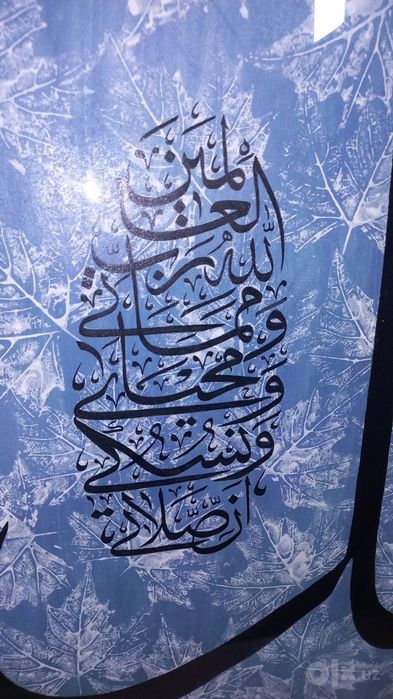 إن صلاتي
ونسكي
ومحياي
ومماتي
لله رب
العالمين
olx.uz